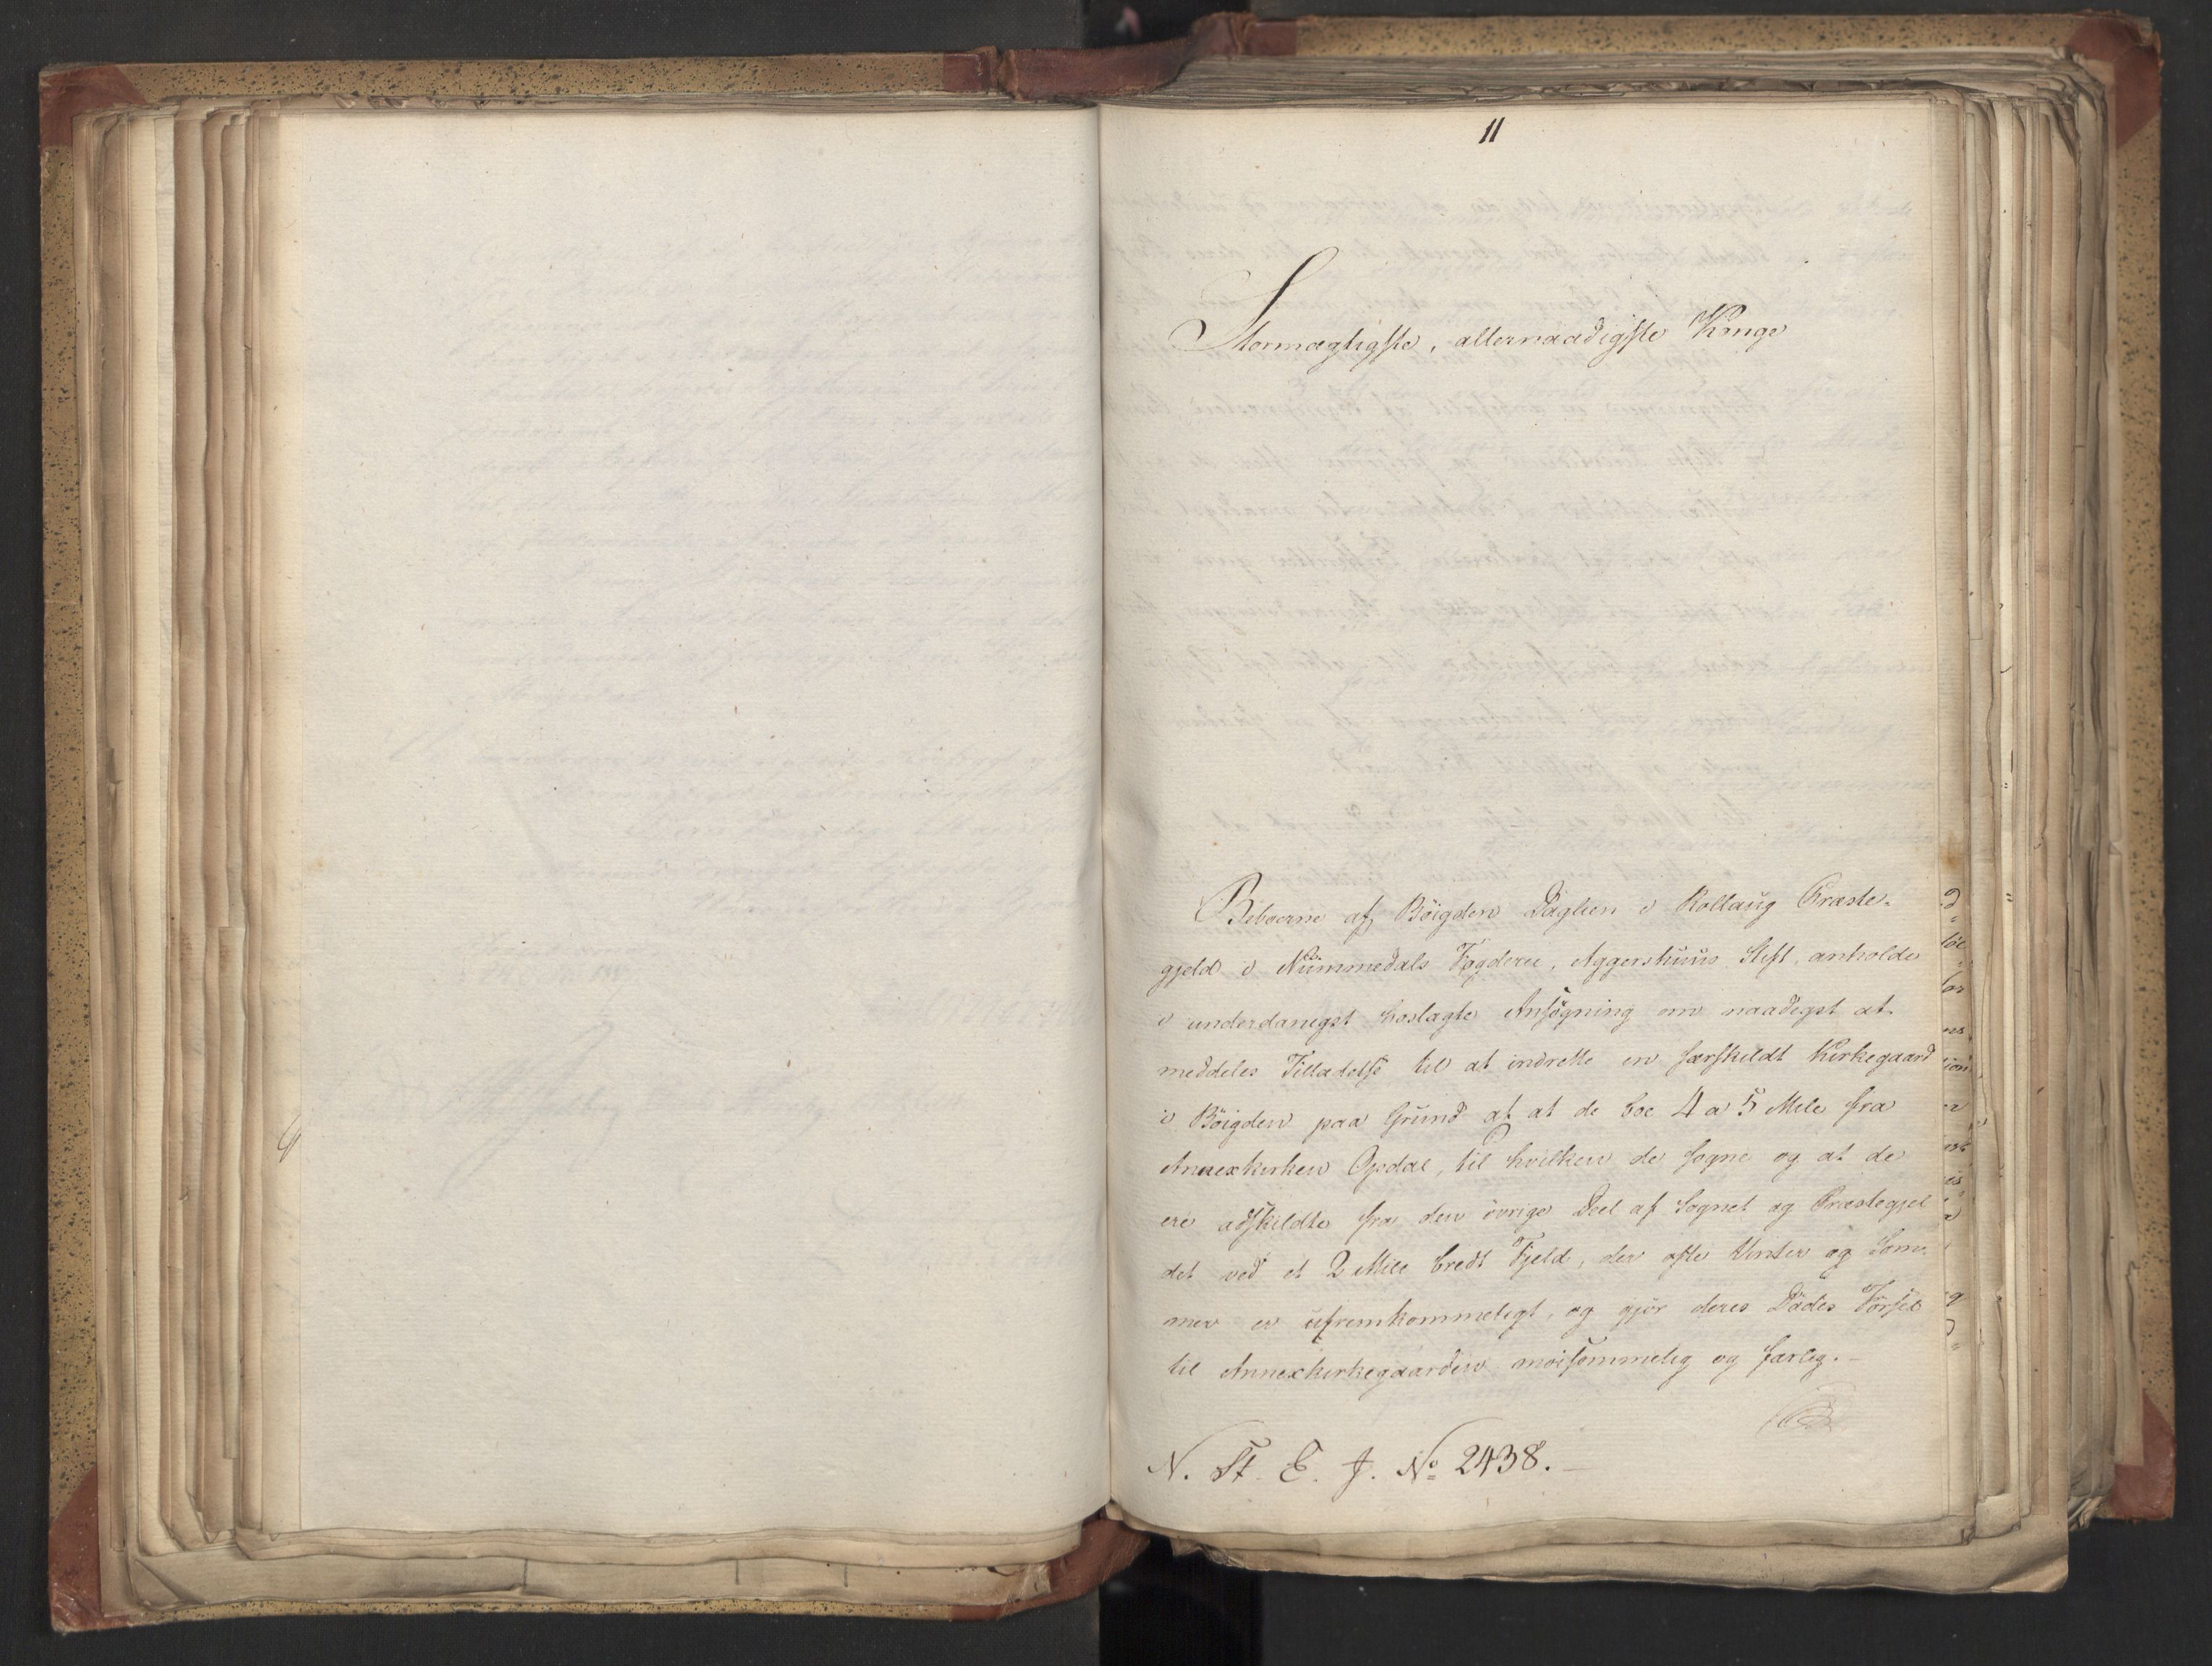 11
Stormægtigste, allernaadigste Konge
Beboerne af Böigden Daglien i Rollaug Præste-
gjeld i Nummedals Fogderie, Aggershuus Stift, anholde
i underdanigst hoslagte Ansögning om naadigst at
meddeles Tilladelse til at indrette en særskildt Kirkegaard
i Böigden paa Grund af at de boe 4 a 5 Mile fra
Annexkirken Opdal, til hvilken de sogne og at de
ere adskildte fra den övrige Deel af Sognet og Præstegjel
det ved et 2 Mile bredt Fjeld, der ofte Vinter og Som-
mer er ufremkommeligt, og gjör deres Dödes Försel
til Annexkirkegaarden möisommelig og farlig. –
N. St. E. J. No 2438. –